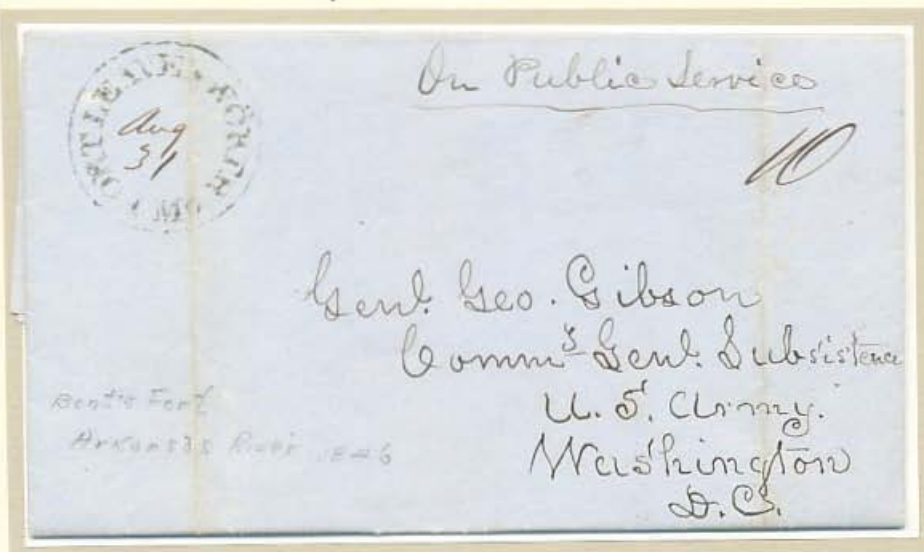 FORT LEAVENWORTH MO
Aug
31
On Public Service
10
Genl. Geo. Gibson
Commy Genl. Subsistence
U.S. Army.
Washington
D.C.
Bent's Fort
Arkansas River 1846